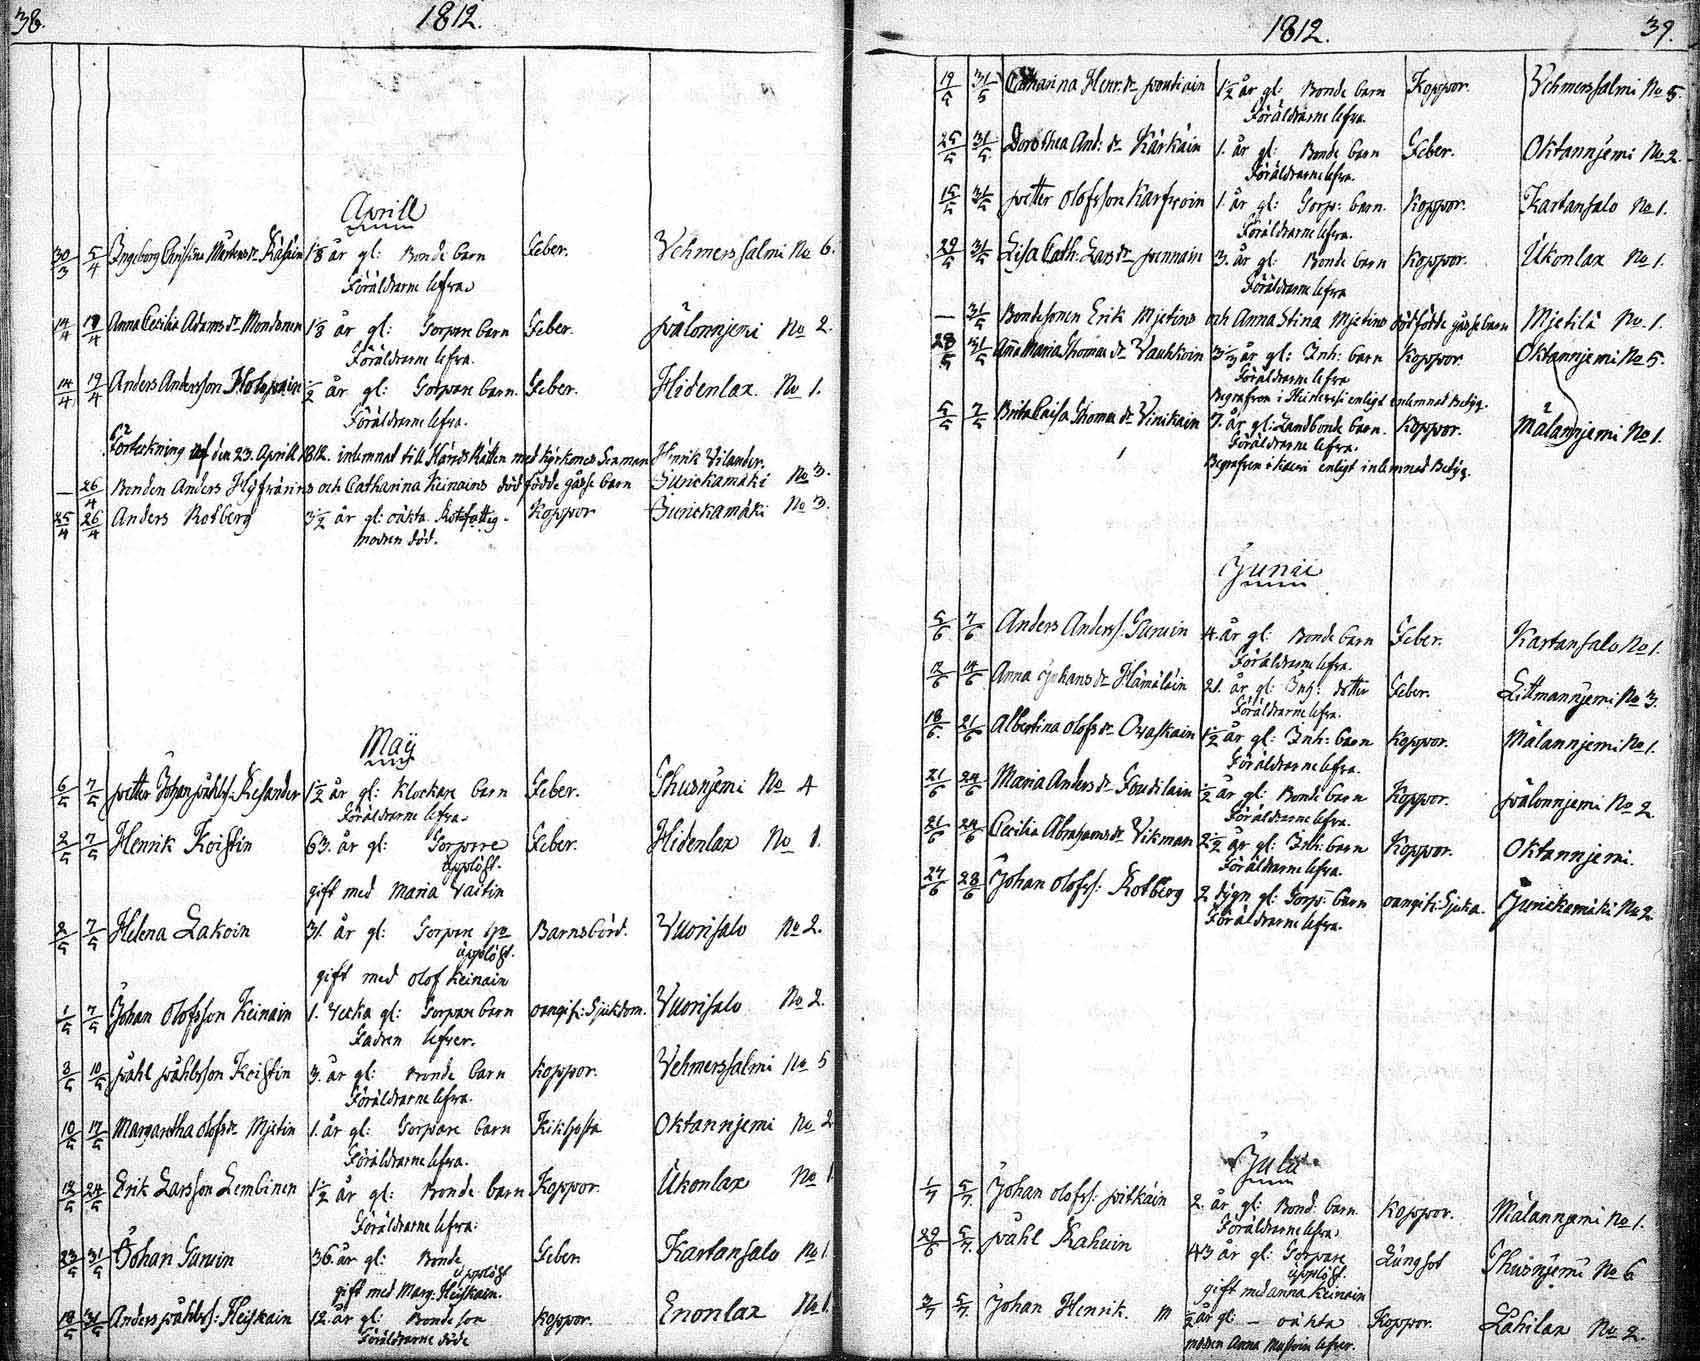 38.
1812.
Aprill
30/3 5/4 Ingeborg Christina Mårtens dr 1/8 år gl: Bonde barn Feber. Vehmerssalmi No 6.
Föräldrarne lefva.
14/4 19/4 Anna Cecilia Adams dr Mondonen 1/8 år gl: Torpare barn Feber. Pälonnjemi No 2.
Föräldrarne lefva.
14/4 19/4 Anders Andersson 1/2 år gl: Torpare barn. Feber. Hidenlax. No 1.
Föräldrarne lefva.
Förteckning den 23. Aprill 1812. inlemnad till Härads Rätten med Kyrkones Lenman Henrik Vilander.
— 26/4 Bonden Anders och Catharina Keinains död födde gåsse barn Jurickamäki No 3.
25/4 26/4 Anders Rotberg 3 1/2 år gl: oäkta Rotefattig. Koppor Jurickamäki No 3.
modren död.
Maij
6/5 7/5 Petter Johan Påhls: Kesander 1 1/2 år gl: Klockare barn Feber. Thusnjemi No 4
Föräldrarne lefva.
2/5 7/5 Henrik Koistin 63. år gl: Torpare Feber. Hidenlax No 1.
upplöst.
gift med Maria Vaitin
2/5 7/5 Helena Lakoin 31. år gl: Torpare Barnsbörd. Vuorisalo No 2.
upplöst.
gift med Olof Keinain
1/5 7/5 Johan Olofsson Keinain 1. Vecka gl: Torpare barn oangif: Sjukdom. Vuorisalo No 2.
Fadren lefver.
3/5 10/5 Påhl Påhlsson Koistin 3. år gl: Bonde barn Koppor. Vehmerssalmi No 5
Föräldrarne lefva.
10/5 17/5 Margaretha Olofs dr Mjetin 1. år gl: Torpare barn Kikhosta Oktannjemi No 2
Föräldrarne lefva.
12/5 24/5 Erik Larsson Lembinen 1 1/2 år gl: Bonde barn Koppor. Ukonlax No 1.
Föräldrarne lefva.
23/5 31/5 Johan Turuin 36. år gl: Bonde Feber. Kartansalo No 1.
upplöst
gift med Marg: Heiskain.
18/5 31/5 Anders Påhls: Heiskain 12. år gl: Bonde son Koppor. Enonlax No 1.
Föräldrarne döde
1812.
39.
19/5 31/5 Catharina Henr: dr Poutiain 1 1/2 år gl: Bonde barn Koppor. Vehmerssalmi No 5.
Föräldrarne lefva.
25/5 31/5 Dorothea And: dr Kärkäin 1. år gl: Bonde barn Feber. Oktannjemi No 2.
Föräldrarne lefva.
15/5 31/5 Petter Olofsson Karhoin 1. år gl: Torp: barn. Koppor. Kartansalo No 1.
Föräldrarne lefva.
29/5 31/5 Lisa Cath: Lars dr Pennain 3. år gl: Bonde barn Koppor. Ukonlax No 1.
Föräldrarne lefva
— 31/5 Bondesonen Erik Mjetins och Anna Stina Mjetins dödfödde gåsse barn Mjetilä No. 1.
28/5 31/5 Anna Maria Thomas dr Vauhkoin år gl: Inh: barn Koppor. Oktannjemi No 5.
Föräldrarne lefva
Begrafven i enligt inlemnad Betyg.
5/5 7/5 Brita Caisa Thomas dr Vinikain 7. år gl: Landbonde barn. Koppor. Målannjemi No 1.
Föräldrarne lefva.
Begrafven i enligt inlemnad Betyg.
Junii
5/6 7/6 Anders Anders: Turuin 4. år gl: Bonde barn Feber. Kartansalo No 1.
Föräldrarne lefva.
12/6 14/6 Anna Johans dr Hämäläin 21. år gl: Inh: dotter Feber. Littmannjemi No 3.
Föräldrarne lefva.
18/6 21/6 Albertina Olofs dr Ovaskain 1 1/2 år gl: Inh: barn Koppor. Målannjemi No 1.
Föräldrarne lefva.
21/6 24/6 Maria Anders dr 1/2 år gl: Bonde barn Koppor. Pälonnjemi No 2
Föräldrarne lefva.
21/6 24/6 Cecilia Abrahams dr Vikman 2 1/2 år gl: Inh: barn Koppor. Oktannjemi.
Föräldrarne lefva.
27/6 28/6 Johan Olofss: Rotberg 2 dygn gl: Torp: barn oangif: Sjuka. Jurickamäki No 2.
Föräldrarne lefva.
Julii
1/7 5/7 Johan Olofss: Pitkäin 2. år gl: Bond: barn Koppor. Målannjemi No 1.
Föräldrarne lefva
29/6 5/7 Påhl Kahuin 43 år gl: Torpare Lungsot Thusnjemi No 6
upplöst.
gift med Anna Keinain
3/7 5/7 Johan Henrik. 1/2 år gl: — oäkta Koppor. Lahilax No 2.
modren Anna lefver.